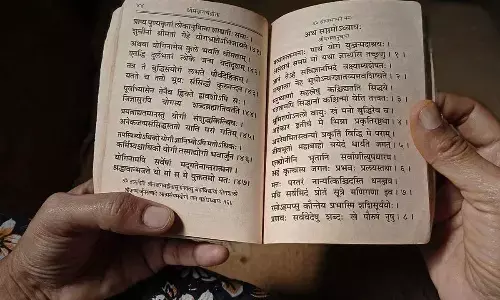 ५५
श्रीमद्भगवद्गीता
प्राप्य पुण्यकृतां लोकानुषित्वा शाश्वतीः समाः ।
शुचीनां श्रीमतां गेहे योगभ्रष्टोऽभिजायते ॥४१॥
अथवा योगिनामेव कुले भवति धीमताम् ।
एतद्धि दुर्लभतरं लोके जन्म यदीदृशम् ॥४२॥
तत्र तं बुद्धिसंयोगं लभते पौर्वदेहिकम् ।
यतते च ततो भूयः संसिद्धौ कुरुनन्दन ॥४३॥
पूर्वाभ्यासेन तेनैव ह्रियते ह्यवशोऽपि सः ।
जिज्ञासुरपि योगस्य शब्दब्रह्मातिवर्तते ॥४४॥
प्रयत्नाद्यतमानस्तु योगी संशुद्धकिल्बिषः ।
अनेकजन्मसंसिद्धस्ततो याति परां गतिम् ॥४५॥
तपस्विभ्योऽधिको योगी ज्ञानिभ्योऽपि मतोऽधिकः ।
कर्मिभ्यश्चाधिको योगी तस्माद्योगी भवार्जुन ॥४६॥
योगिनामपि सर्वेषां मद्गतेनान्तरात्मना ।
श्रद्धावान्भजते यो मां स मे युक्ततमो मतः ॥४७॥
अथ सप्तमोऽध्यायः
श्रीभगवानुवाच
मय्यासक्तमनाः पार्थ योगं युञ्जन्मदाश्रयः ।
असंशयं समग्रं मां यथा ज्ञास्यसि तच्छृणु ॥ १ ॥
ज्ञानं तेऽहं सविज्ञानमिदं वक्ष्याम्यशेषतः ।
यज्ज्ञात्वा नेह भूयोऽन्यज्ज्ञातव्यमवशिष्यते ॥ २ ॥
मनुष्याणां सहस्रेषु कश्चिद्यतति सिद्धये ।
यततामपि सिद्धानां कश्चिन्मां वेत्ति तत्त्वतः ॥ ३ ॥
भूमिरापोऽनलो वायुः खं मनो बुद्धिरेव च ।
अहंकार इतीयं मे भिन्ना प्रकृतिरष्टधा ॥ ४ ॥
अपरेयमितस्त्वन्यां प्रकृतिं विद्धि मे पराम् ।
जीवभूतां महाबाहो ययेदं धार्यते जगत् ॥ ५ ॥
एतद्योनीनि भूतानि सर्वाणीत्युपधारय ।
अहं कृत्स्नस्य जगतः प्रभवः प्रलयस्तथा ॥ ६ ॥
मत्तः परतरं नान्यत्किञ्चिदस्ति धनञ्जय ।
मयि सर्वमिदं प्रोतं सूत्रे मणिगणा इव ॥ ७ ॥
रसोऽहमप्सु कौन्तेय प्रभास्मि शशिसूर्ययोः ।
प्रणवः सर्ववेदेषु शब्दः खे पौरुषं नृषु ॥ ८ ॥